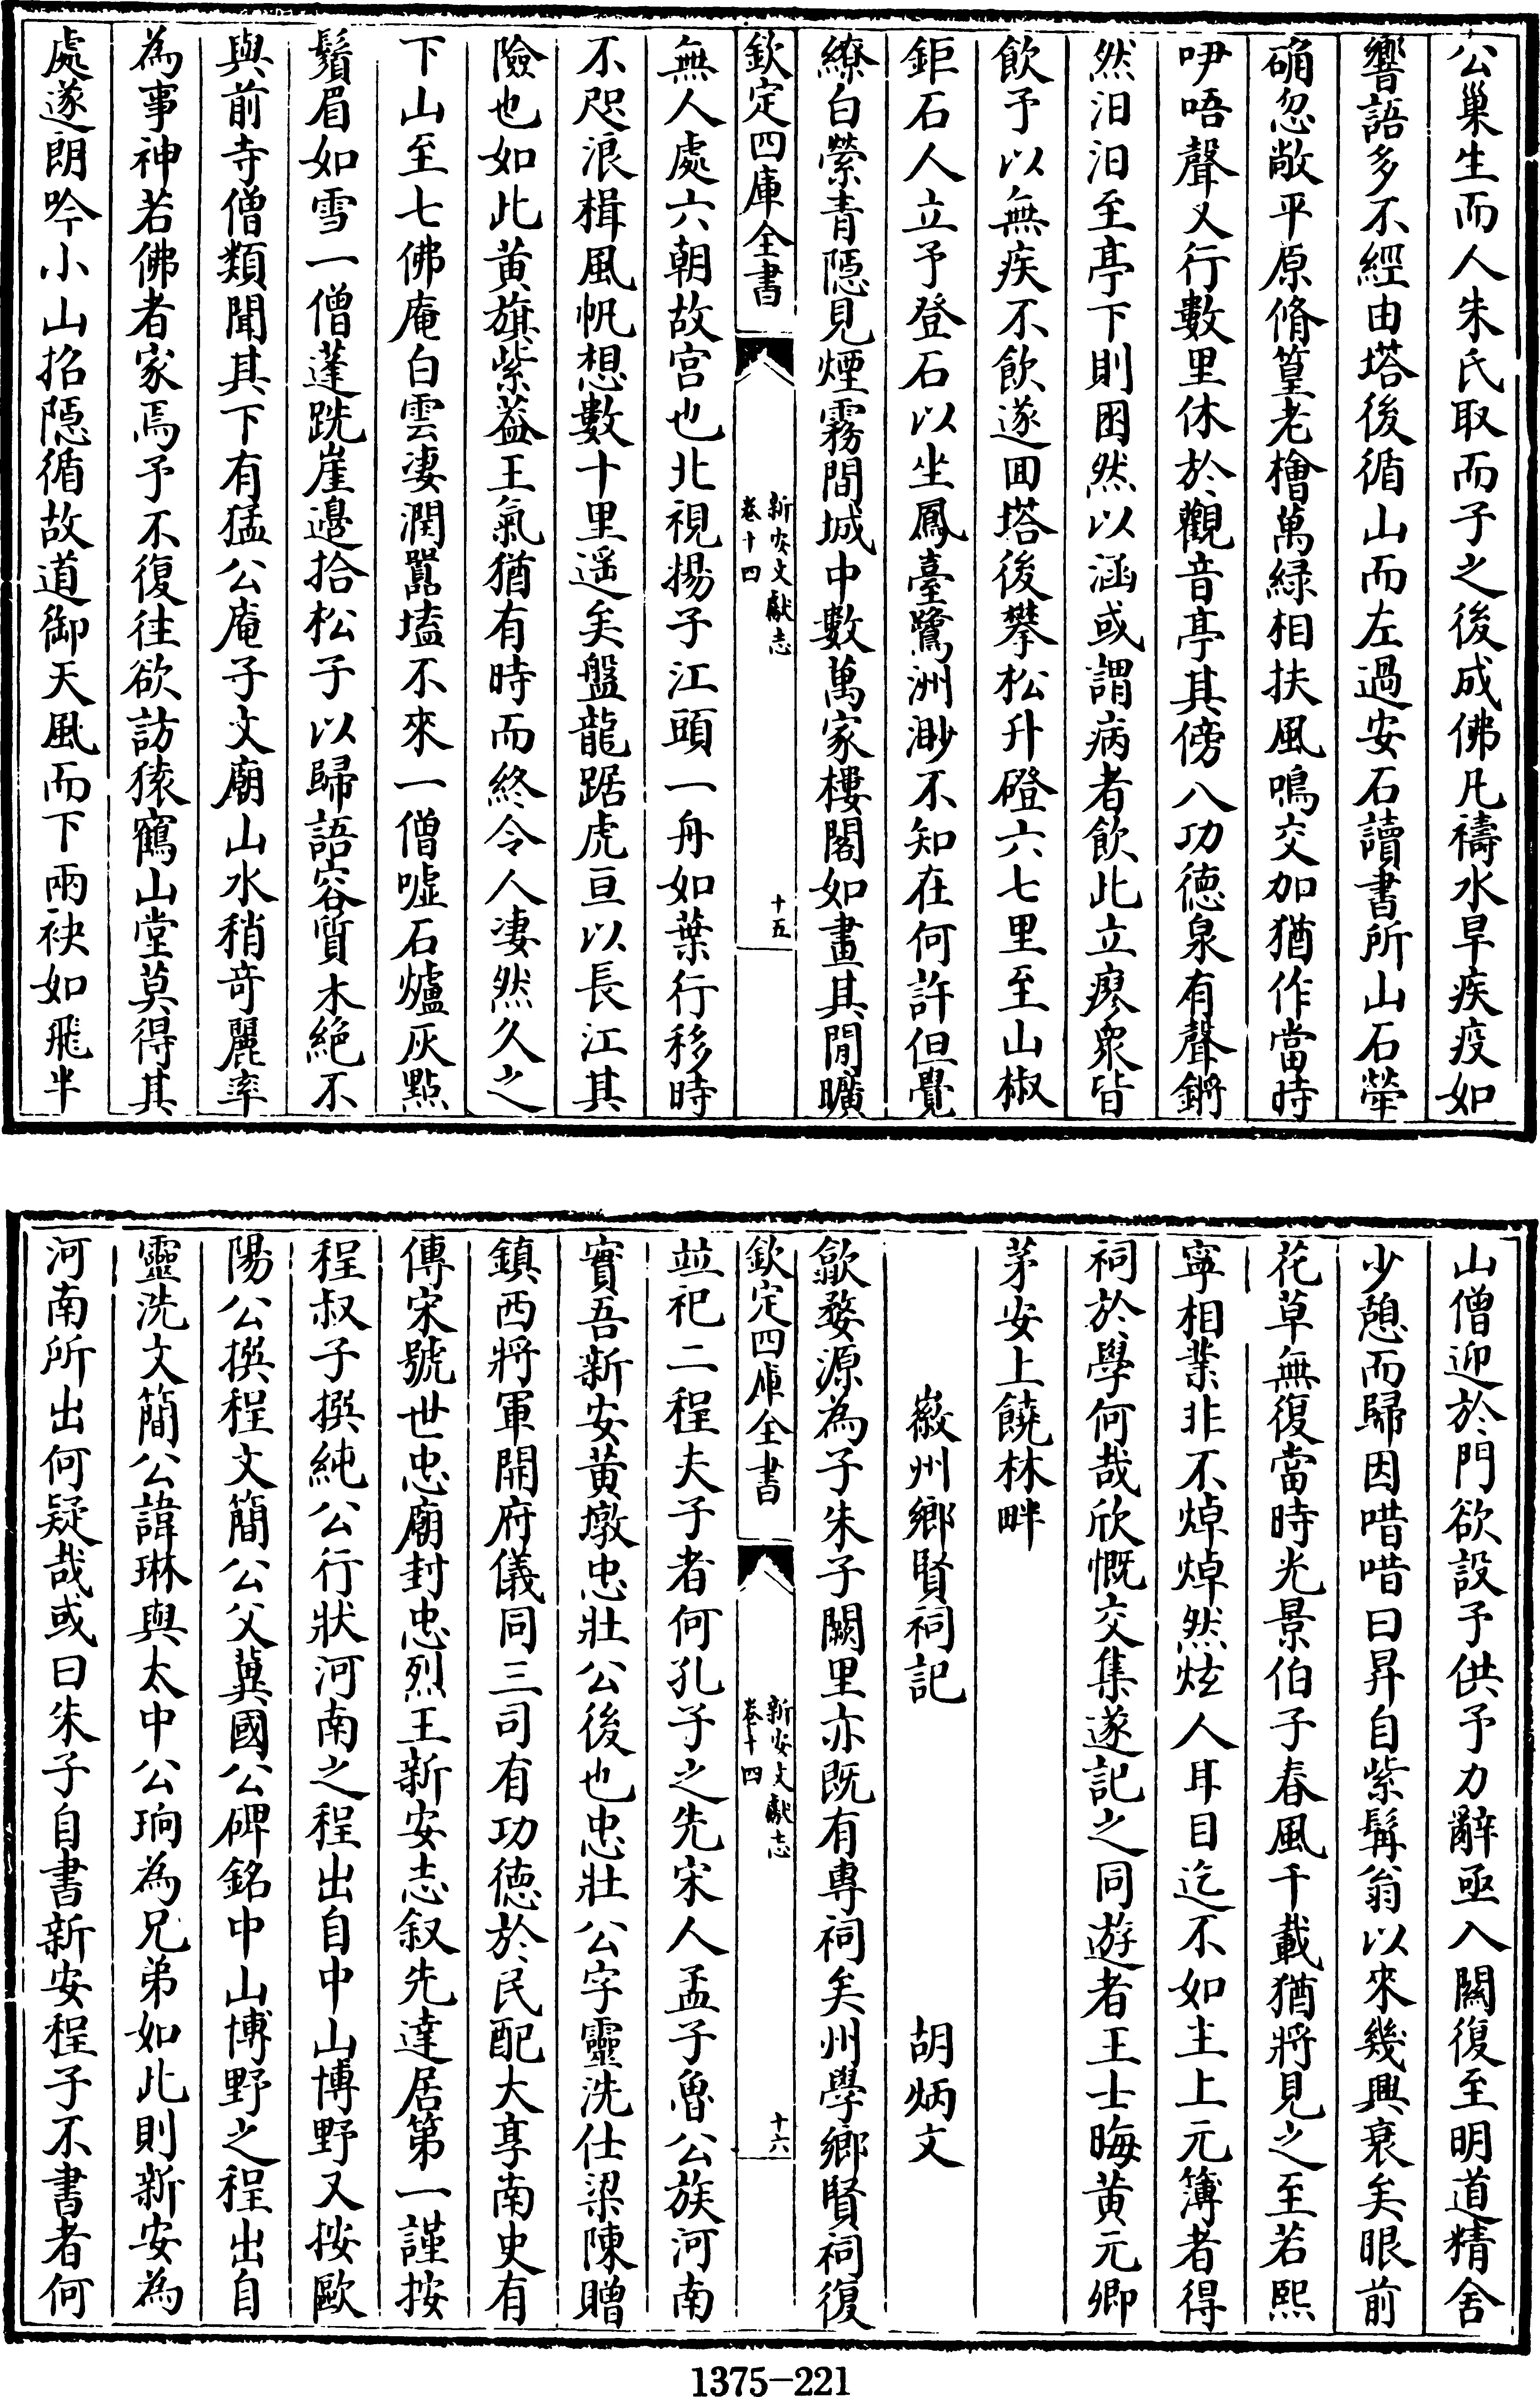 公巢生而人朱氏取而子之後成佛凡禱水旱疾疫如
響語多不經由塔後循山而左過安石讀書所山石犖
确忽敞平原脩篁老檜萬緑相扶風鳴交加猶作當時
咿唔聲又行數里休於觀音亭其傍八功徳泉有聲鏘
然汨汨至亭下則困然以涵或謂病者飲此立瘳衆皆
飲予以無疾不飲遂囬塔後攀松升磴六七里至山椒
鉅石人立予登石以坐鳳臺鷺洲渺不知在何許但覺
繚白縈青隠見煙霧間城中數萬家樓閣如畫其閒曠
欽定四庫全書
新安文獻志
卷十四
十五
無人處六朝故宫也北視揚子江頭一舟如葉行移時
不咫浪楫風帆想數十里遥矣盤龍踞虎亘以長江其
險也如此黄旗紫葢王氣猶有時而終令人凄然久之
下山至七佛庵白雲凄潤囂壒不來一僧噓石爐灰點
鬚眉如雪一僧蓬跣崖邉拾松子以歸語容質木絶不
與前寺僧類聞其下有猛公庵子文廟山水稍竒麗率
為事神若佛者家焉予不復往欲訪猿鶴山堂莫得其
處遂朗吟小山招隠循故道御天風而下兩袂如飛半
山僧迎於門欲設予供予力辭亟入闗復至明道精舍
少憩而歸因唶唶曰昇自紫髯翁以來幾興衰矣眼前
花草無復當時光景伯子春風千載猶將見之至若熙
寧相業非不焯焯然炫人耳目迄不如主上元簿者得
祠於學何哉欣慨交集遂記之同遊者王士晦黄元卿
茅安上饒林畔
徽州鄉賢祠記
胡炳文
歙婺源為子朱子闕里亦既有專祠矣州學鄉賢祠復
欽定四庫全書
新安文獻志
卷十四
十六
竝祀二程夫子者何孔子之先宋人孟子魯公族河南
實吾新安黄墩忠壯公後也忠壯公字靈洗仕梁陳贈
鎮西將軍開府儀同三司有功徳於民配大享南史有
傳宋號世忠廟封忠烈王新安志叙先達居第一謹按
程叔子撰純公行狀河南之程出自中山博野又按歐
陽公撰程文簡公父冀國公碑銘中山博野之程出自
靈洗文簡公諱琳與太中公珦為兄弟如此則新安為
河南所出何疑哉或曰朱子自書新安程子不書者何
1375-221